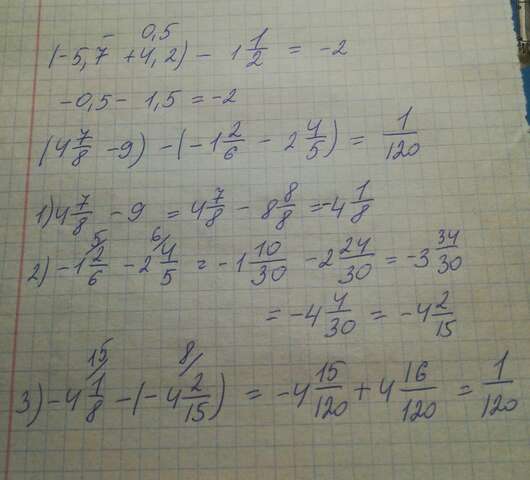 - 0,5
(-5,7 + 4,2) - 1 1/2 = -2
-0,5 - 1,5 = -2
(4 7/8 - 9) - (-1 2/6 - 2 4/5) = 1/120
1) 4 7/8 - 9 = 4 7/8 - 8 8/8 = -4 1/8
5/ 6/
2) -1 2/6 - 2 4/5 = -1 10/30 - 2 24/30 = -3 34/30
= -4 4/30 = -4 2/15
15/ 8/
3) -4 1/8 - (-4 2/15) = -4 15/120 + 4 16/120 = 1/120